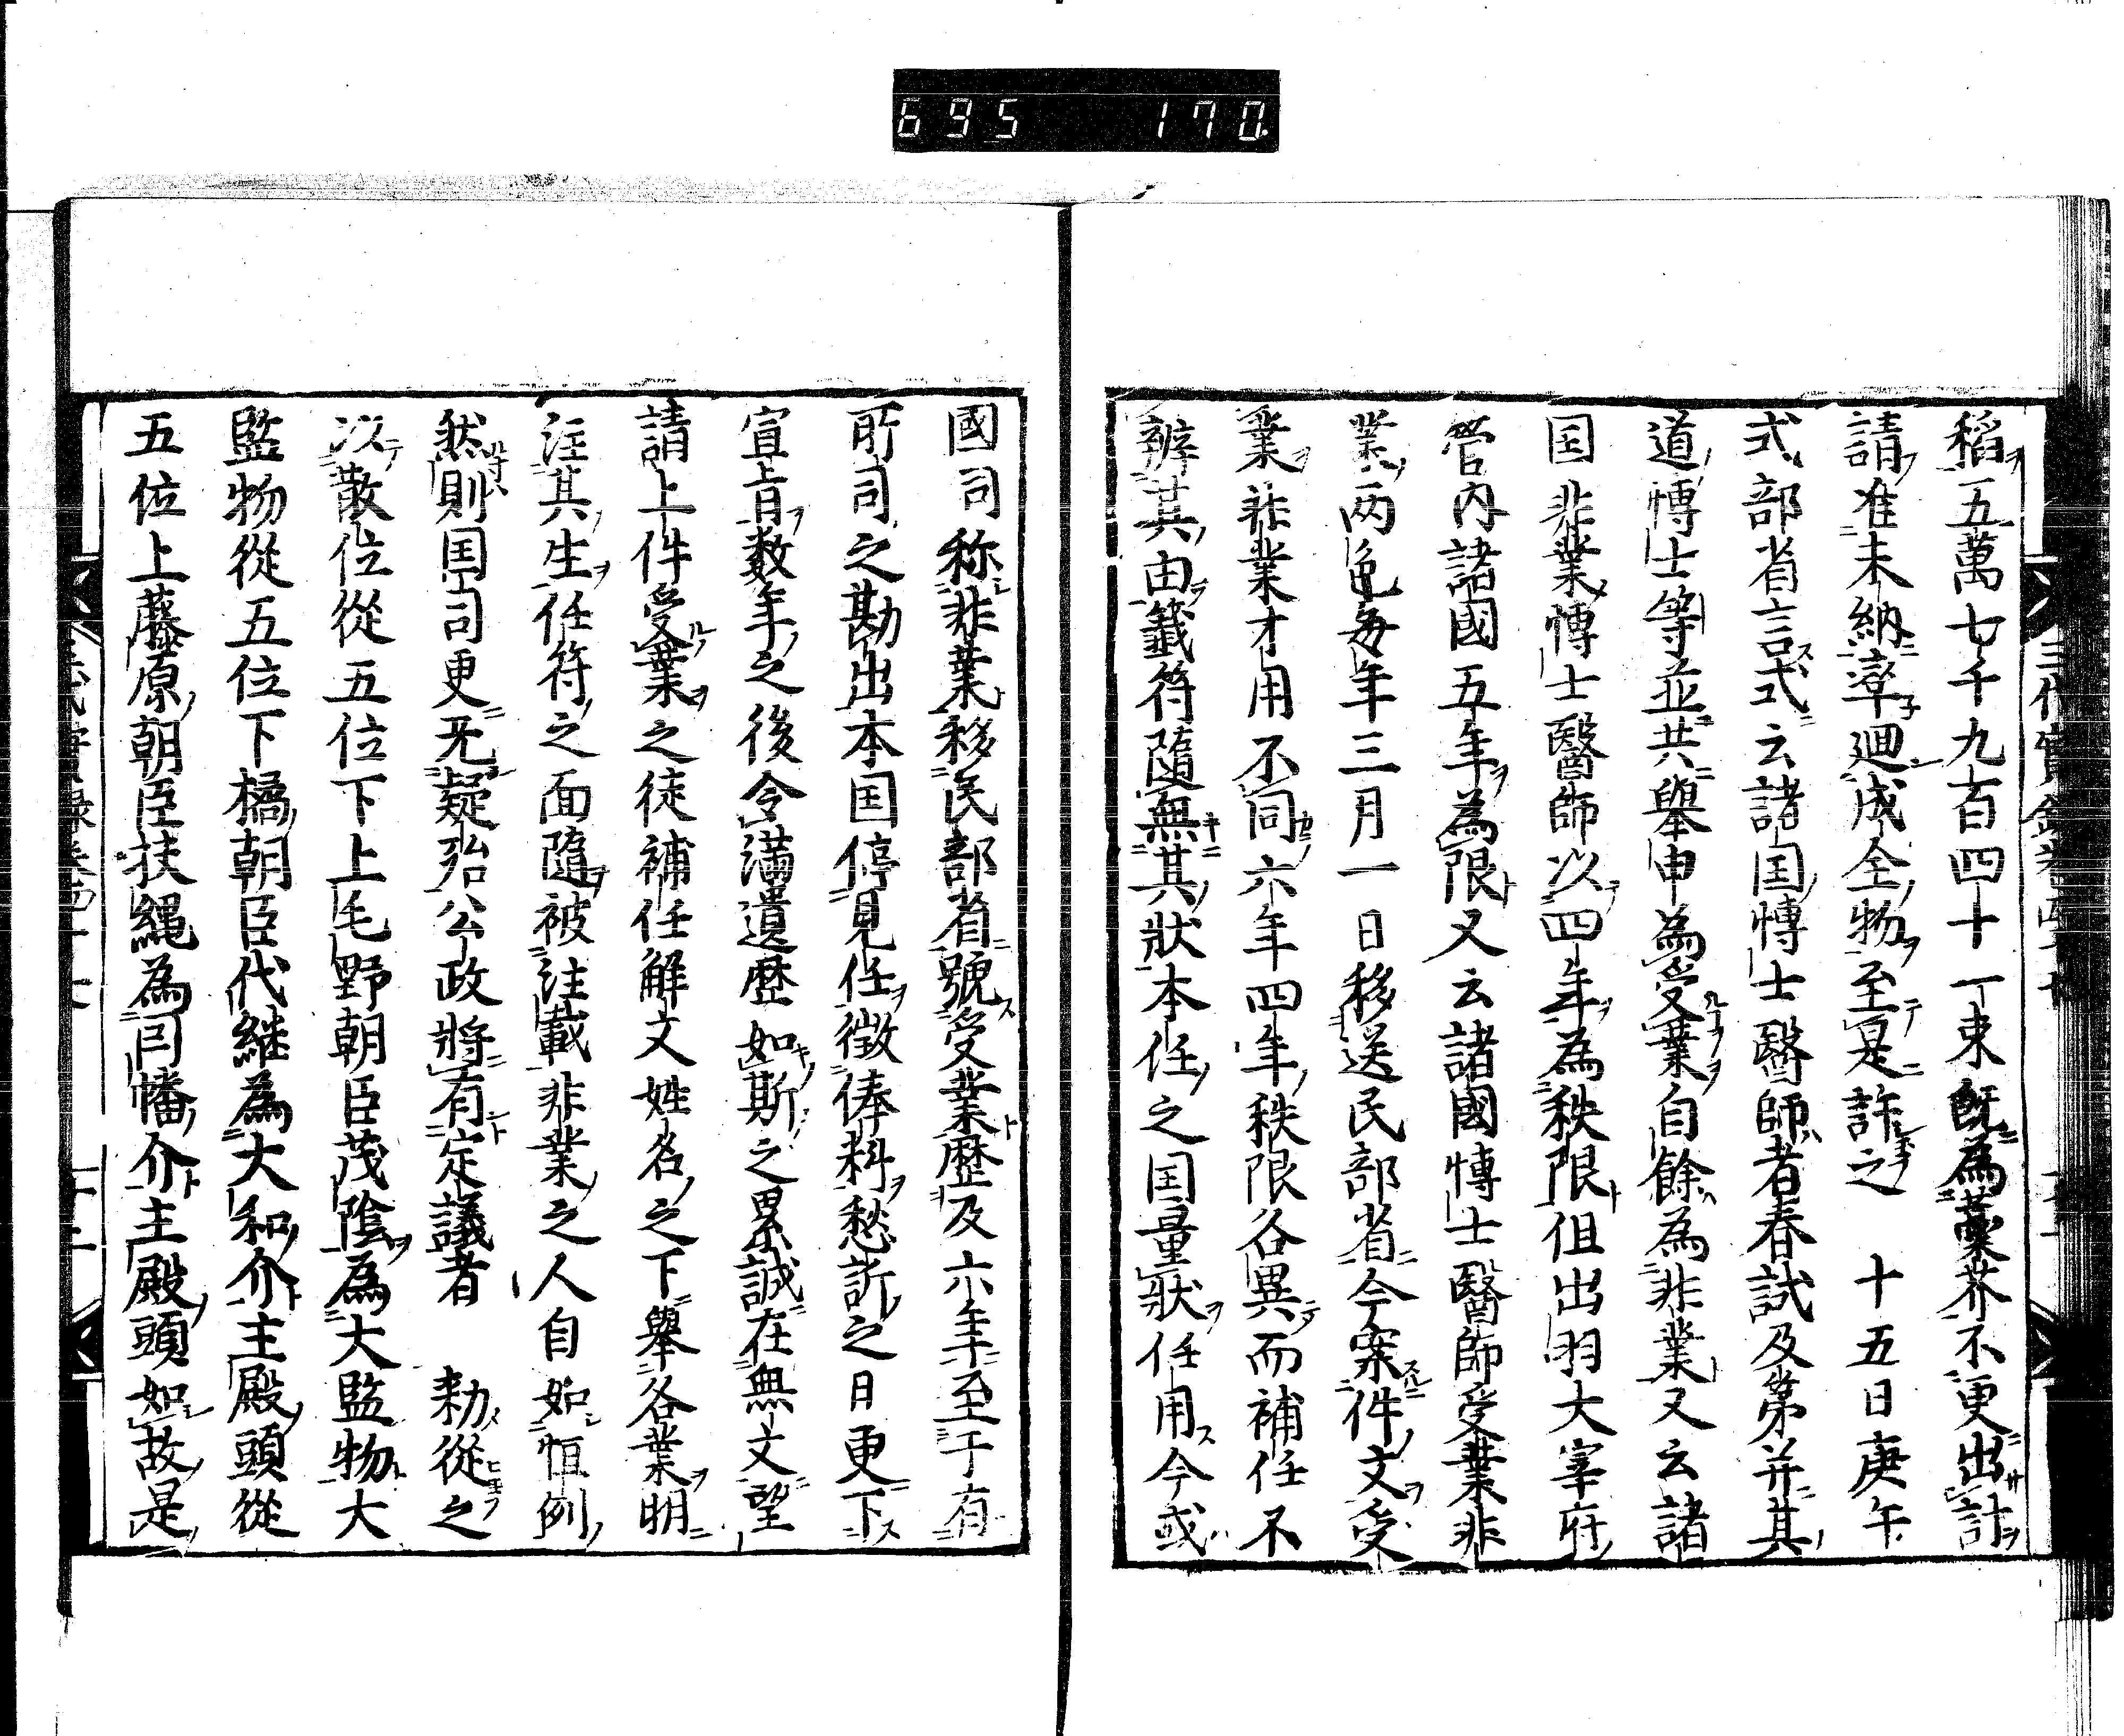 695 170
稻五萬七千九百四十一束既為藁芥不更出計
請准未納率廻成全物至是許之 十五日庚午
式部省言式云諸国博士醫師者春試及第并其
道博士等並共舉申為受業自餘為非業又云諸
国非業博士醫師以四年為秩限但出羽大宰府
管內諸國五年為限又云諸國博士醫師受業非
業兩色每年三月一日移送民部省今案件文受
業非業才用不同六年四年秩限各異而補任不
辨其由籤符隨無其狀本任之国量狀任用今或
國司称非業移民部省號受業歷及六年至于有
所司之勘出本国停見任徵俸料愁訴之日更下
宣旨数年之後令滿遺歷如斯之累誠在無文望
請上件受業之徒補任解文姓名之下舉各業明
注其生任符之面隨被注載非業之人自如恒例
然則国司更无疑殆公政將有定議者 勑從之
以散位從五位下上毛野朝臣茂陰為大監物大
監物從五位下橘朝臣代継為大和介主殿頭從
五位上藤原朝臣扶繩為因幡介主殿頭如故是